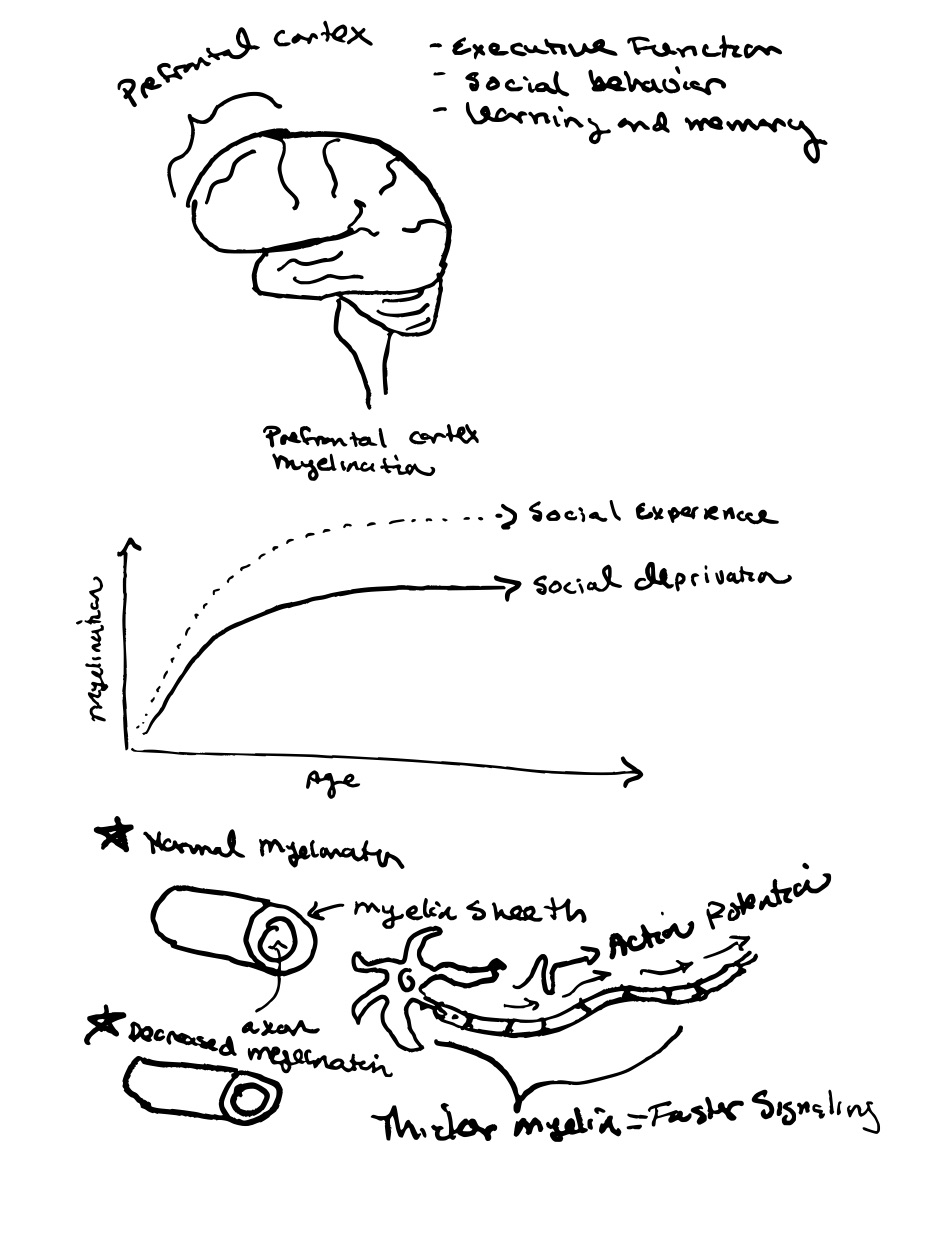 Prefrontal cortex
- Executive Function
- Social behavior
- Learning and memory
Prefrontal cortex
Myelination
Social Experience
Social deprivation
Myelination
Age
★ Normal Myelination
Myelin Sheeth
Action Potential
axon
★ Decreased myelination
Thicker myelin = Faster Signaling